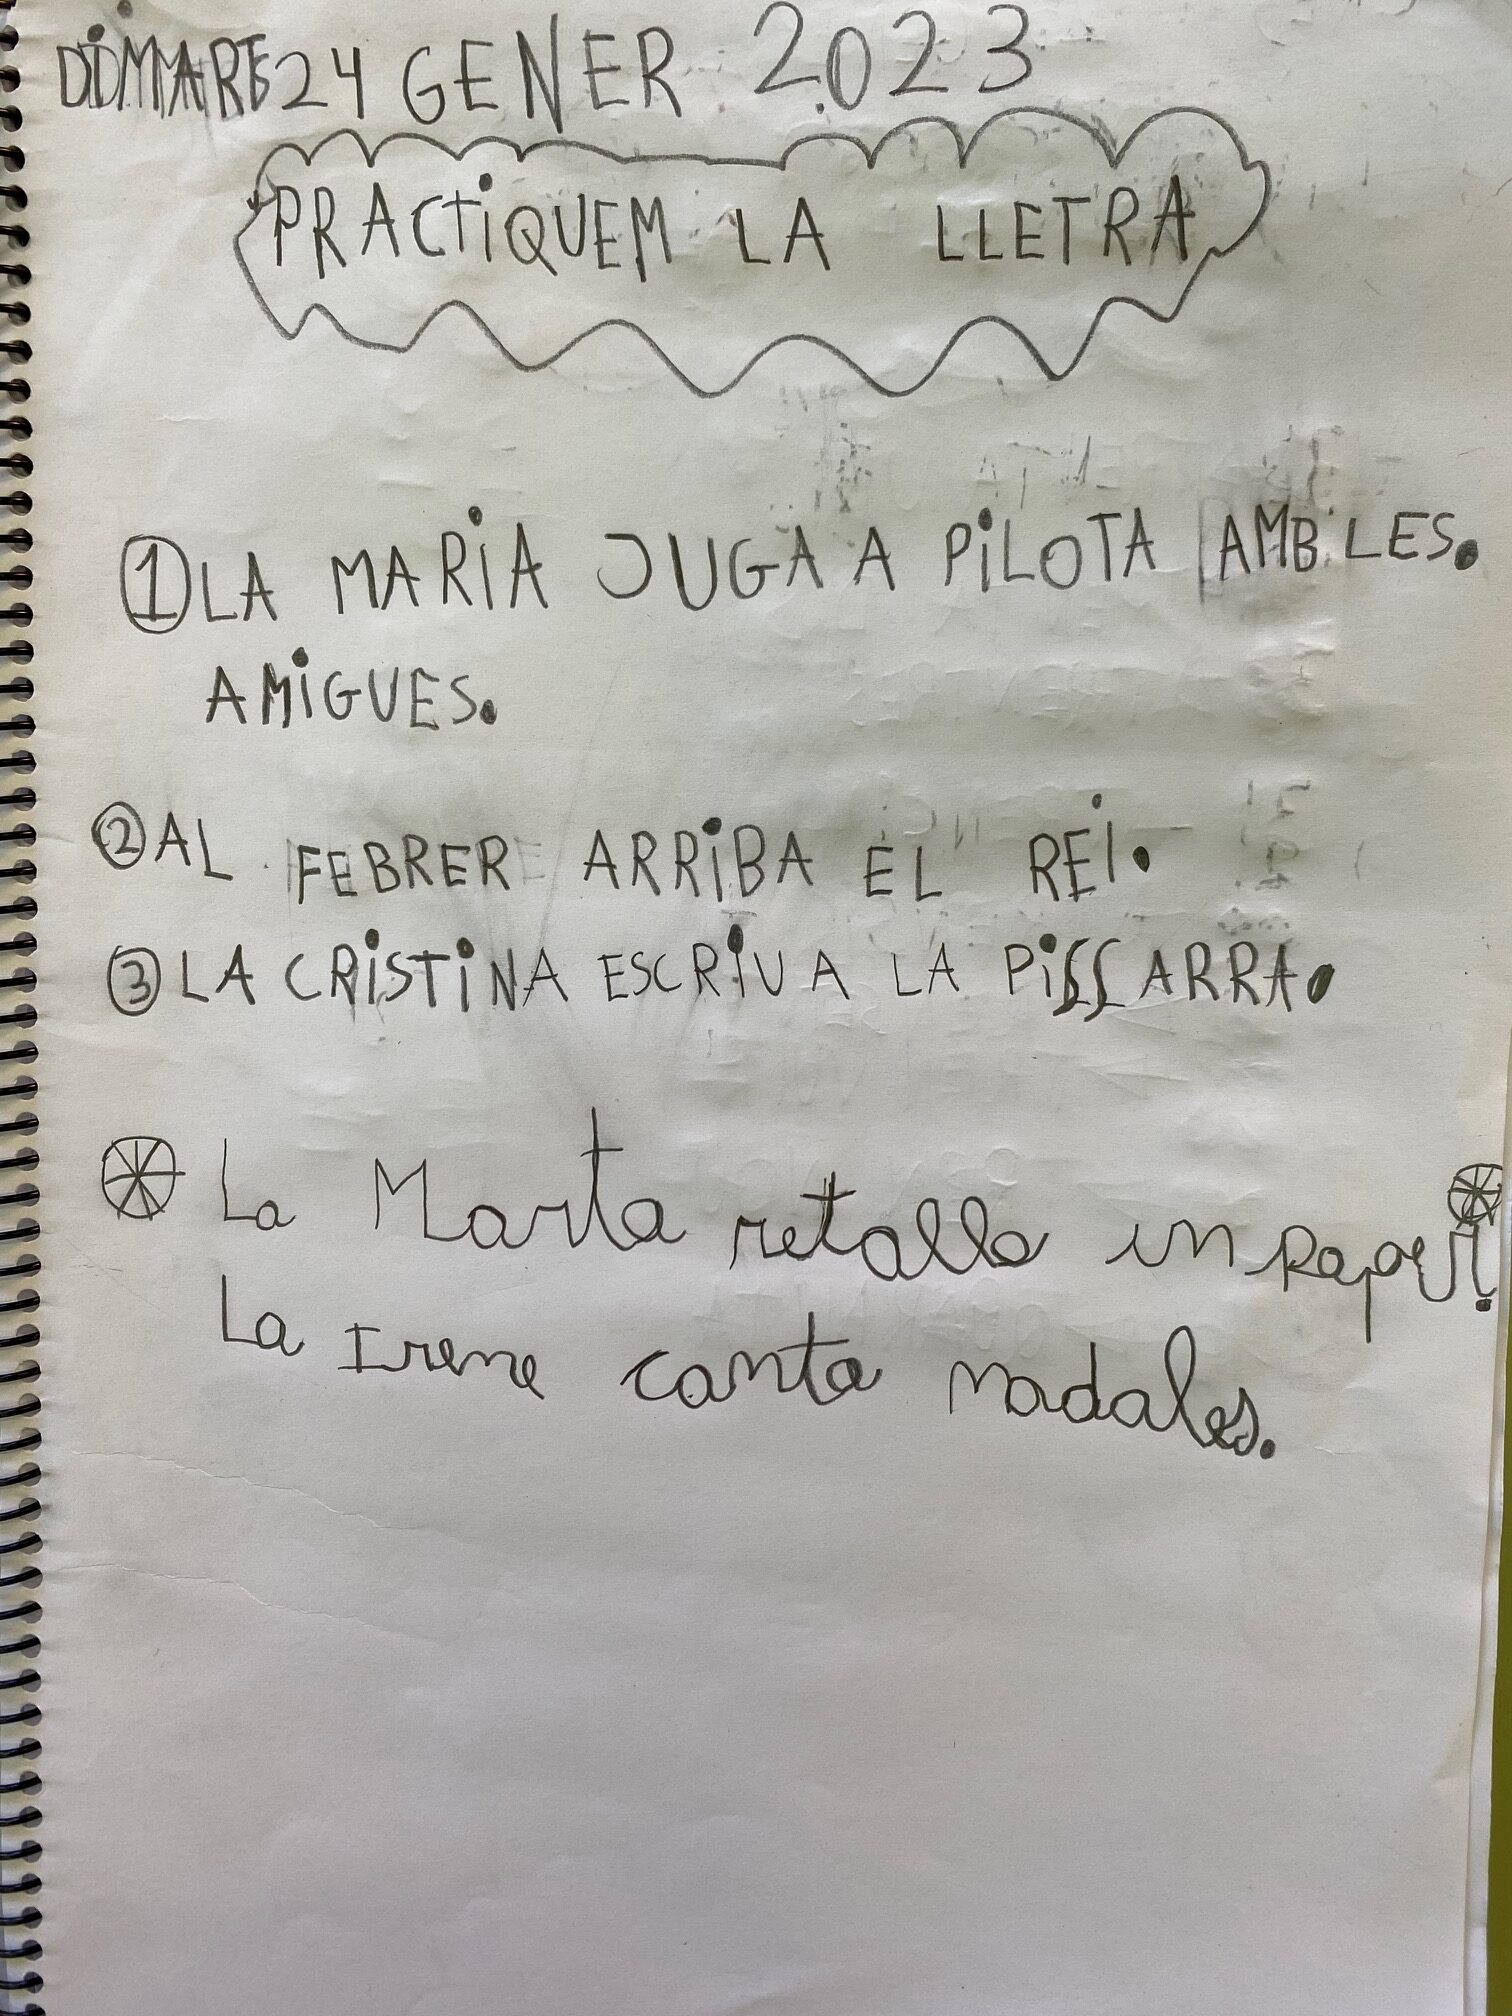 DIMARTS 24 GENER 2023
PRACTIQUEM LA LLETRA
1 LA MARIA JUGA A PILOTA AMB LES.
AMIGUES.
2 AL FEBRER ARRIBA EL REI.
3 LA CRISTINA ESCRIU A LA PISSARRA.
La Marta retalla un paper!
La Irene canta nadales.